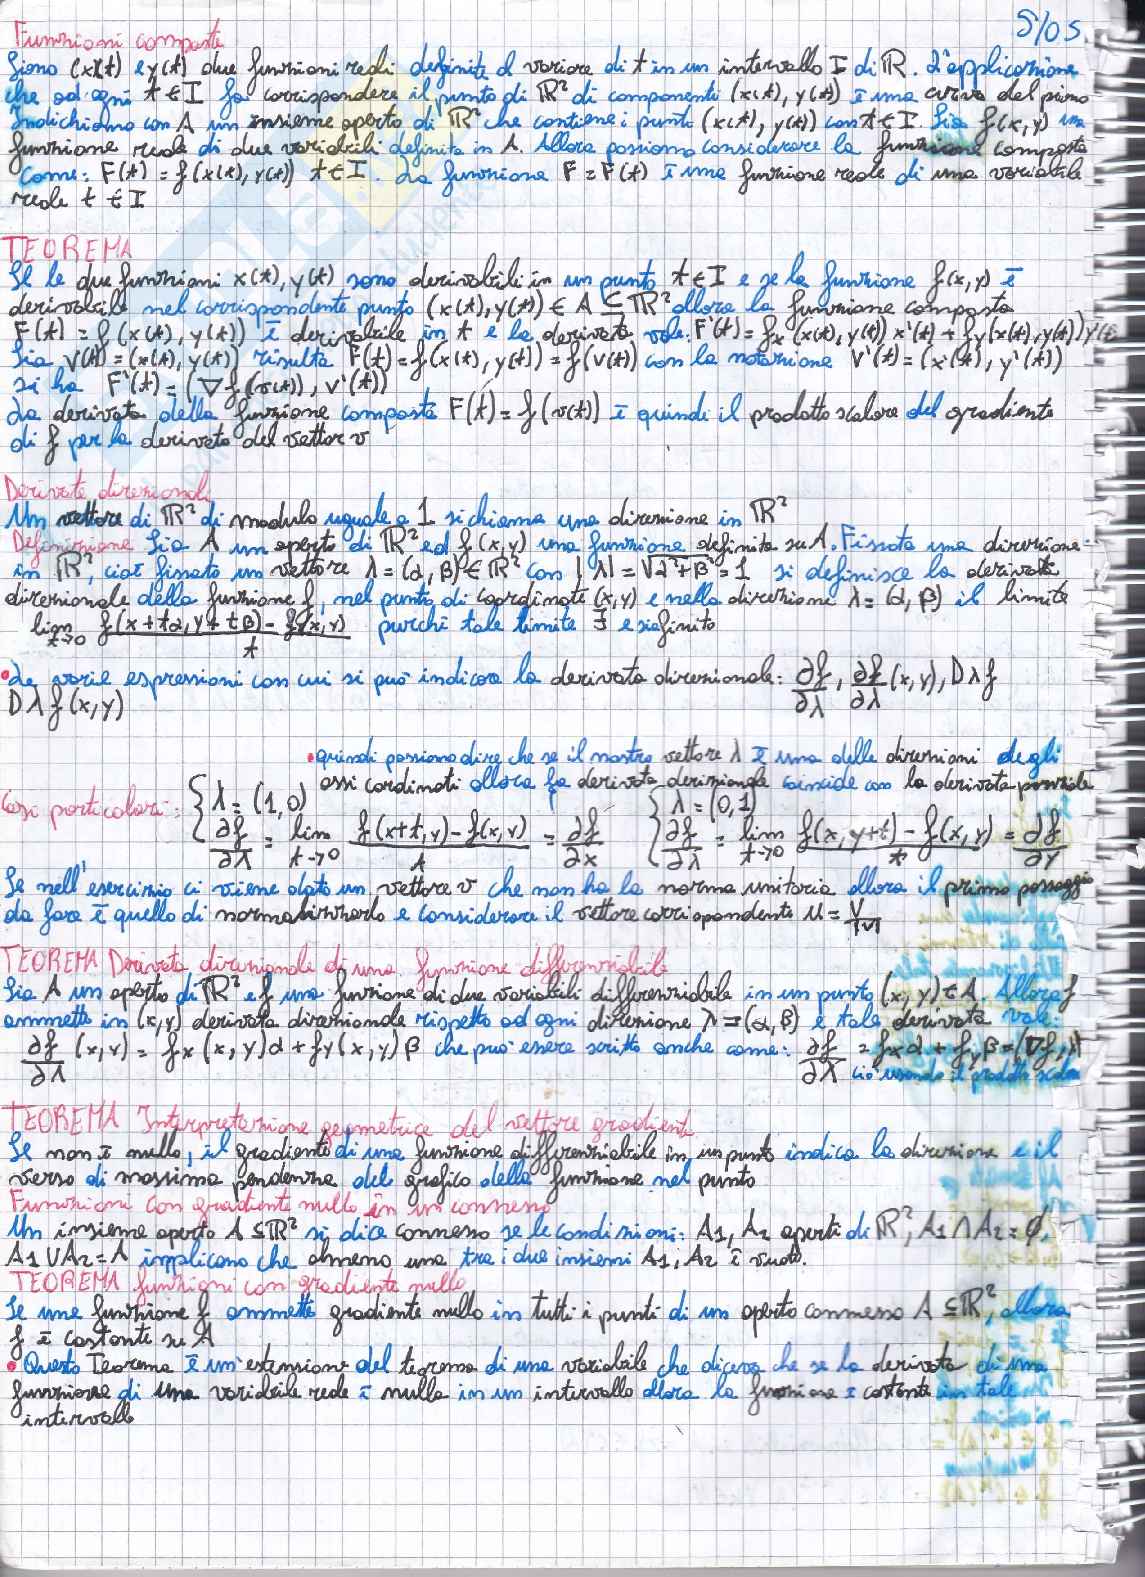 5/05
Funzioni composte
Siano (x)(t) e y(t) due funzioni reali definite al variare di t in un intervallo I di ℝ. L'applicazione
che ad ogni t ∈ I fa corrispondere il punto di ℝ² di componenti (x(t), y(t)) è una curva del piano
Indichiamo con A un insieme aperto di ℝ² che contiene i punti (x(t), y(t)) con t ∈ I. Sia f(x,y) una
funzione reale di due variabili definita in A. Allora possiamo considerare la funzione composta
come: F(t) = f(x(t), y(t)) t ∈ I. La funzione F = F(t) è una funzione reale di una variabile
reale t ∈ I
TEOREMA
Se le due funzioni x(t), y(t) sono derivabili in un punto t ∈ I e se la funzione f(x,y) è
derivabile nel corrispondente punto (x(t), y(t)) ∈ A ⊆ ℝ² allora la funzione composta
F(t) = f(x(t), y(t)) è derivabile in t e la derivata vale: F'(t) = fx(x(t), y(t)) x'(t) + fy(x(t), y(t)) y'(t)
Sia v(t) = (x(t), y(t)) risulta F(t) = f(x(t), y(t)) = f(v(t)) con la notazione v'(t) = (x'(t), y'(t))
si ha F'(t) = (∇f(v(t)), v'(t))
La derivata della funzione composta F(t) = f(v(t)) è quindi il prodotto scalare del gradiente
di f per la derivata del vettor v
Derivate direzionali
Un vettore di ℝ² di modulo uguale a 1 si chiama una direzione in ℝ²
Definizione Sia A un aperto di ℝ² ed f(x,y) una funzione definita su A. Fissata una direzione
in ℝ², cioè fissato un vettore λ = (α, β) ∈ ℝ² con |λ| = √α²+β² = 1 si definisce la derivata
direzionale della funzione f, nel punto di coordinate (x,y) e nella direzione λ = (α, β) il limite
lim t→0 f(x+tα, y+tβ) - f(x,y) / t purché tale limite ∃ e sia finito
• Le varie espressioni con cui si può indicare la derivata direzionale: ∂f/∂λ, ∂f/∂λ (x,y), Dλf
Dλf(x,y)
• quindi possiamo dire che se il nostro vettore λ è una delle direzioni degli
assi cordinati allora la derivata direzionale coincide con la derivata parziale
Casi particolari: { λ = (1,0) { λ = (0,1)
∂f/∂λ = lim t→0 f(x+t,y) - f(x,y) / t = ∂f/∂x ∂f/∂λ = lim t→0 f(x,y+t) - f(x,y) / t = ∂f/∂y
Se nell'esercizio ci viene dato un vettore v che non ha la norma unitaria allora il primo passaggio
da fare è quello di normalizzarlo e considerare il vettore corrispondente u = v/|v|
TEOREMA Derivata direzionale di una funzione differenziabile
Sia A un aperto di ℝ² e f una funzione di due variabili differenziabile in un punto (x,y) ∈ A. Allora f
ammette in (x,y) derivata direzionale rispetto ad ogni direzione λ = (α, β) e tale derivata vale:
∂f/∂λ (x,y) = fx(x,y)α + fy(x,y)β che può essere scritto anche come: ∂f/∂λ = fxα + fyβ = (∇f, λ)
ciò usando il prodotto scalare
TEOREMA Interpretazione geometrica del vettore gradiente
Se non è nullo, il gradiente di una funzione differenziabile in un punto indica la direzione e il
verso di massima pendenza del grafico della funzione nel punto
Funzioni con gradiente nullo in un connesso
Un insieme aperto A ⊆ ℝ² si dice connesso se le condizioni: A1, A2 aperti di ℝ², A1 ∩ A2 = ∅,
A1 ∪ A2 = A implicano che almeno uno tra i due insiemi A1, A2 è vuoto.
TEOREMA funzioni con gradiente nullo
Se una funzione f ammette gradiente nullo in tutti i punti di un aperto connesso A ⊆ ℝ², allora
f è costante su A
• Questo Teorema è un'estensione del teorema di una variabile che diceva che se la derivata di una
funzione di una variabile reale è nulla in un intervallo allora la funzione è costante in tale
intervallo